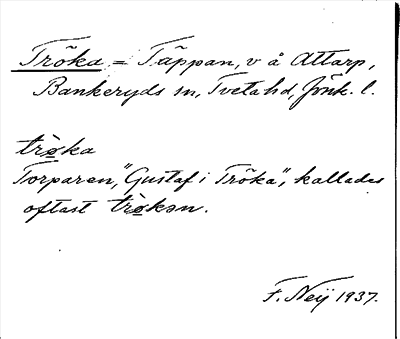 Tröka = Täppan, v å Attarp,
Bankeryds sn, Tveta hd, Jönk. l.
trø̀ka
Torparen, "Gustaf i Tröka", kallades
oftast trø̀kən.
F. Neÿ 1937.